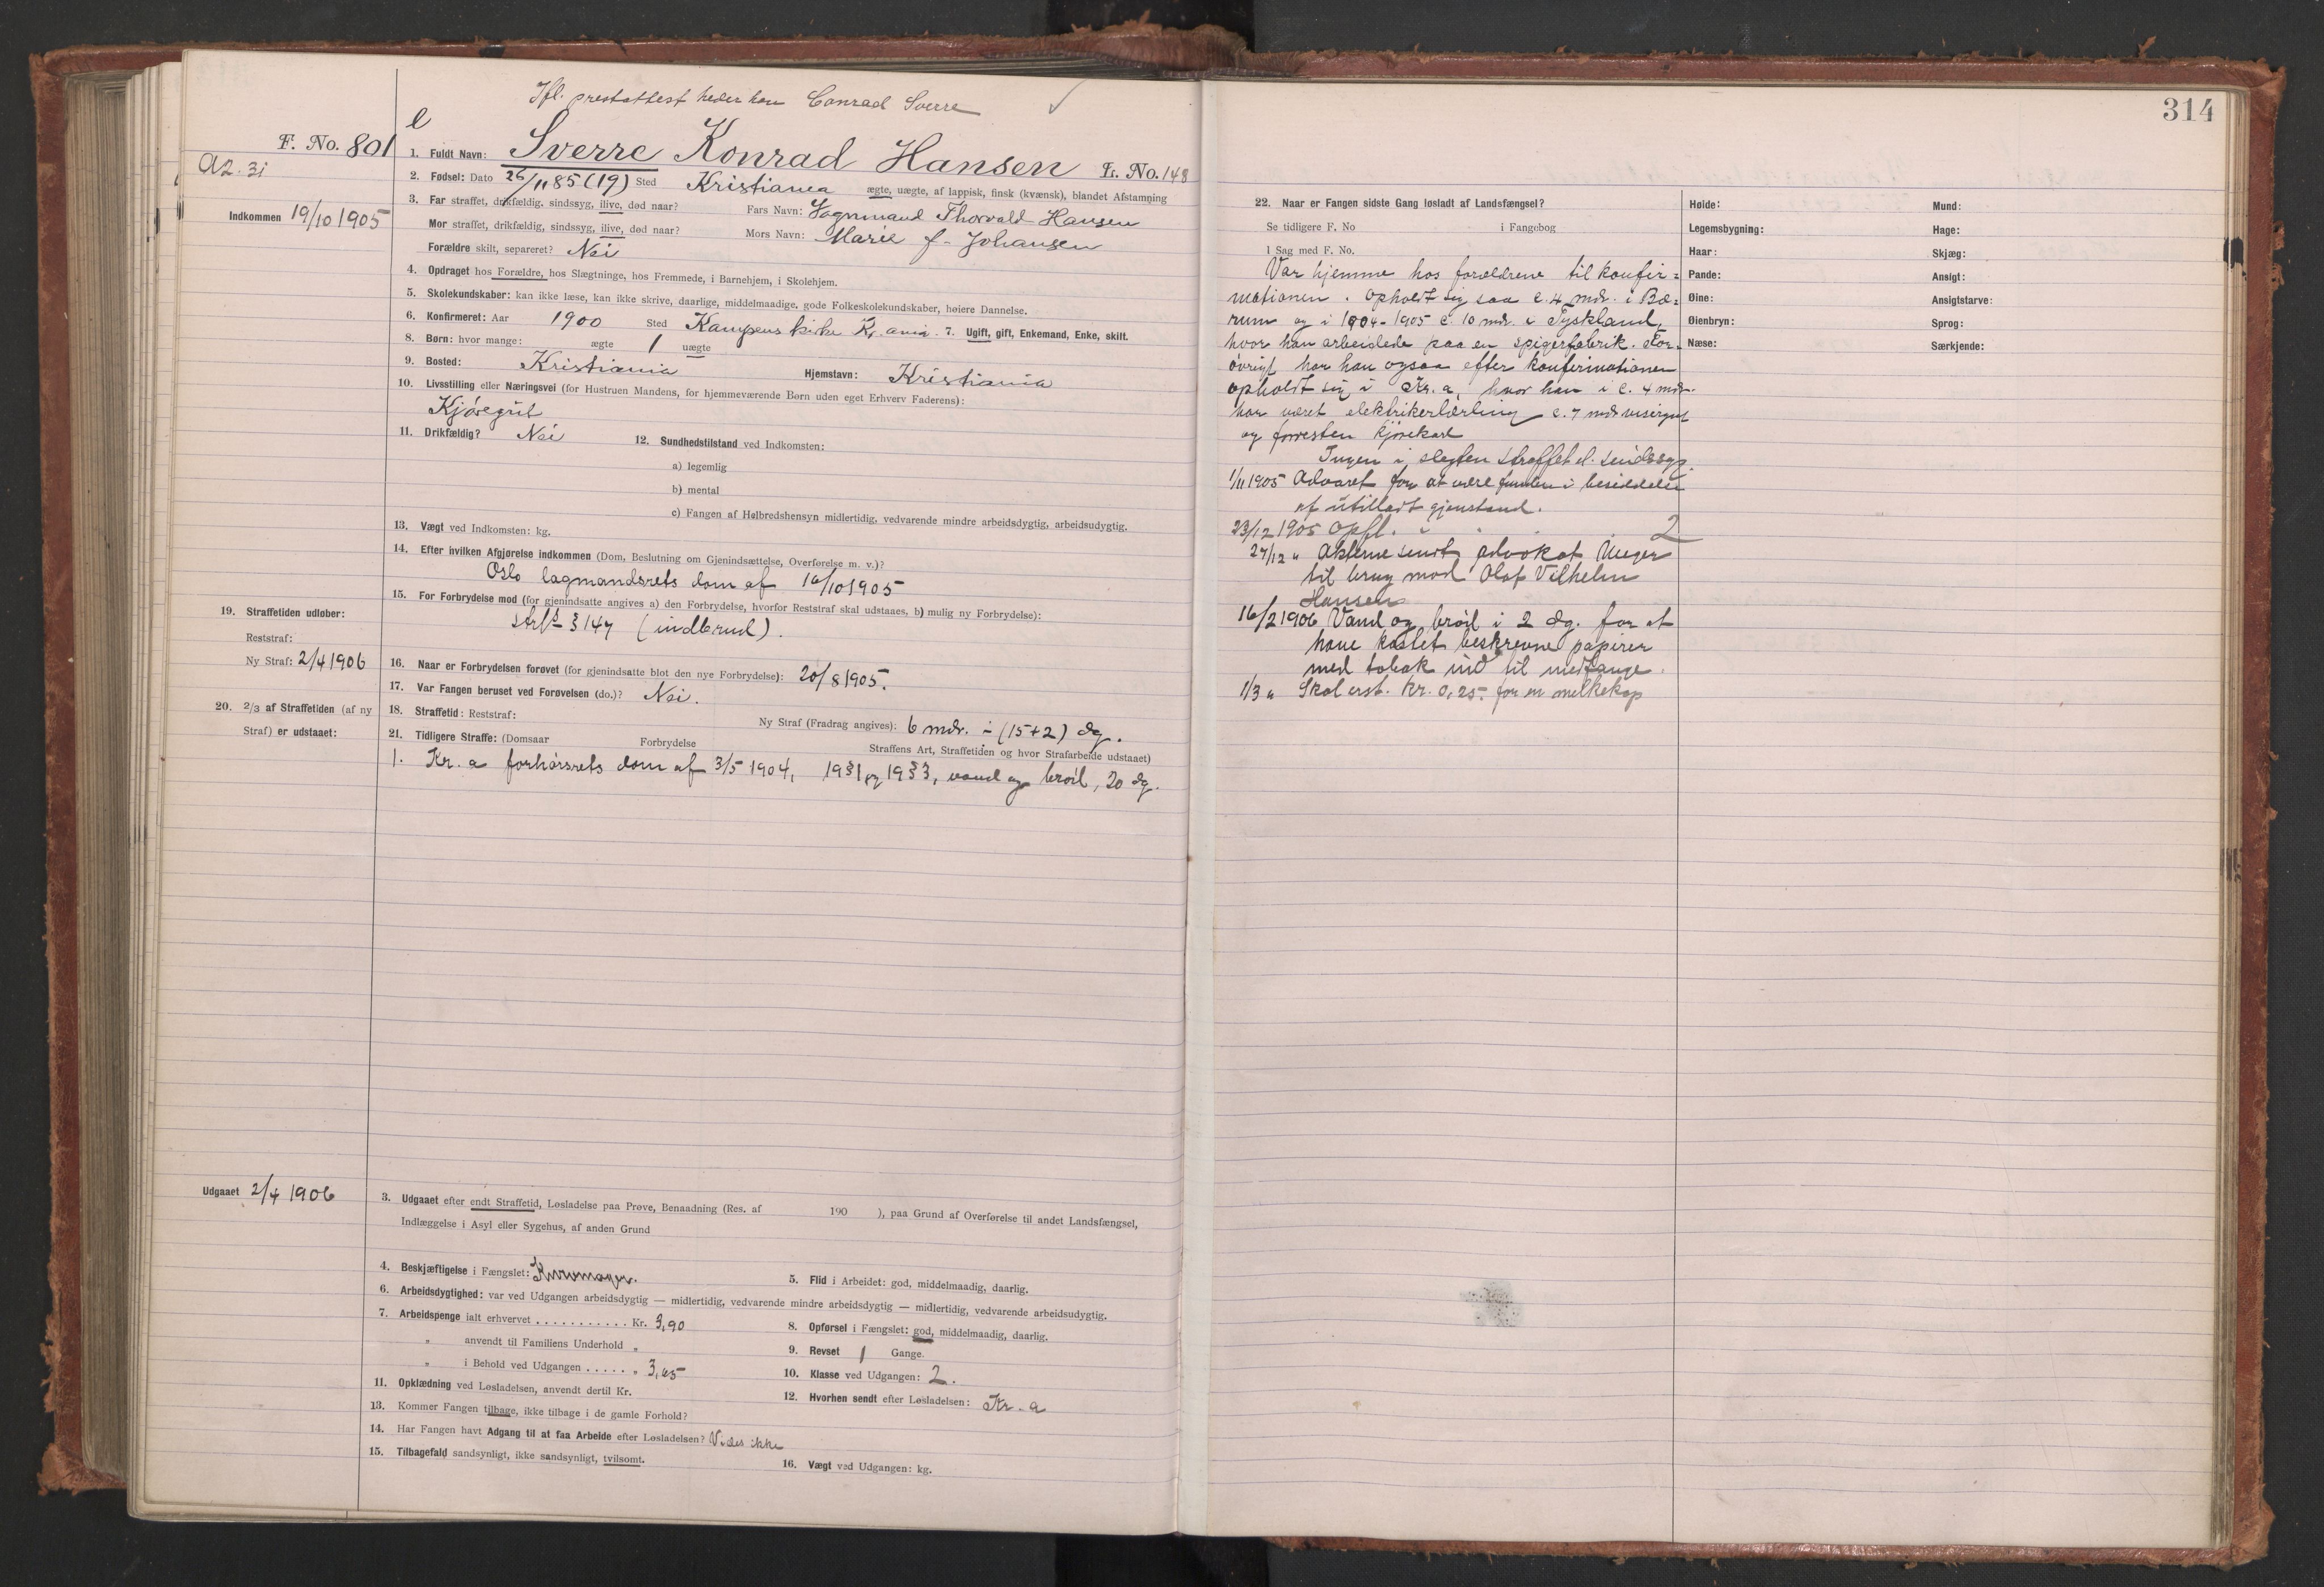 Ifl. prestattest heder han Conrad Sverre
F. No. 801
A2. 31
1. Fuldt Navn: Sverre Konrad Hansen L. No. 148
2. Fødsel: Dato 26/11 85 (19) Sted Kristiania ægte, uægte, af lappisk, finsk (kvænsk), blandet Afstamning
Indkommen 19/10 1905
3. Far straffet, drikfældig, sindssyg, ilive, død naar? Fars Navn: Vognmand Thorvald Hansen
Mor straffet, drikfældig, sindssyg, ilive, død naar? Mors Navn: Marie f. Johansen
Forældre skilt, separeret? Nei
4. Opdraget hos Forældre, hos Slægtninge, hos Fremmede, i Barnehjem, i Skolehjem.
5. Skolekundskaber: kan ikke læse, kan ikke skrive, daarlige, middelmaadige, gode Folkeskolekundskaber, høiere Dannelse.
6. Konfirmeret: Aar 1900 Sted Kampens kirke Kr.ania. 7. Ugift, gift, Enkemand, Enke, skilt.
8. Børn: hvor mange: ægte 1 uægte
9. Bosted: Kristiania Hjemstavn: Kristiania
10. Livsstilling eller Næringsvei (for Hustruen Mandens, for hjemmeværende Børn uden eget Erhverv Faderens):
Kjøregut
11. Drikfældig? Nei 12. Sundhedstilstand ved Indkomsten:
a) legemlig
b) mental
c) Fangen af Helbredshensyn midlertidig, vedvarende mindre arbeidsdygtig, arbeidsudygtig.
13. Vægt ved Indkomsten: kg.
14. Efter hvilken Afgjørelse indkommen (Dom, Beslutning om Gjenindsættelse, Overførelse m. v.)?
Oslo lagmandsrets dom af 16/10 1905
15. For Forbrydelse mod (for gjenindsatte angives a) den Forbrydelse, hvorfor Reststraf skal udstaaes, b) mulig ny Forbrydelse):
strfl § 147 (indbrud).
19. Straffetiden udløber:
Reststraf:
Ny Straf: 2/4 1906
16. Naar er Forbrydelsen forøvet (for gjenindsatte blot den nye Forbrydelse): 20/8 1905.
17. Var Fangen beruset ved Forøvelsen (do.)? Nei.
20. 2/3 af Straffetiden (af ny
Straf) er udstaaet:
18. Straffetid: Reststraf: Ny Straf (Fradrag angives): 6 mdr. ÷ (15+2) dg.
21. Tidligere Straffe: (Domsaar Forbrydelse Straffens Art, Straffetiden og hvor Strafarbeide udstaaet)
1. Kr.a forhørsrets dom af 3/5 1904, 19 § 1 og 19 § 3, vand og brød, 20 dg.
Udgaaet 2/4 1906
3. Udgaaet efter endt Straffetid, Løsladelse paa Prøve, Benaadning (Res. af 190 ), paa Grund af Overførelse til andet Landsfængsel,
Indlæggelse i Asyl eller Sygehus, af anden Grund
4. Beskjæftigelse i Fængslet: Kurvmager.
5. Flid i Arbeidet: god, middelmaadig, daarlig.
6. Arbeidsdygtighed: var ved Udgangen arbeidsdygtig — midlertidig, vedvarende mindre arbeidsdygtig — midlertidig, vedvarende arbeidsudygtig.
7. Arbeidspenge ialt erhvervet . . . . . . . . . . . Kr. 3,90
8. Opførsel i Fængslet: god, middelmaadig, daarlig.
" anvendt til Familiens Underhold "
9. Revset 1 Gange.
" i Behold ved Udgangen . . . . . " 3,65
10. Klasse ved Udgangen: 2.
11. Opklædning ved Løsladelsen, anvendt dertil Kr.
12. Hvorhen sendt efter Løsladelsen: Kr.a
13. Kommer Fangen tilbage, ikke tilbage i de gamle Forhold?
14. Har Fangen havt Adgang til at faa Arbeide efter Løsladelsen? Vides ikke
15. Tilbagefald sandsynligt, ikke sandsynligt, tvilsomt.
16. Vægt ved Udgangen: kg.
314
22. Naar er Fangen sidste Gang løsladt af Landsfængsel?
Se tidligere F. No i Fangebog
I Sag med F. No.
Var hjemme hos forældrene til konfir=
mationen. Opholdt sig saa c. 4 mdr. i Bæ=
rum og i 1904-1905 c. 10 mdr. i Tyskland,
hvor han arbeidede paa en spigerfabrik. For=
øvrigt har han ogsaa efter konfirmationen
opholdt sig i Kr.a, hvor han i c. 4 mdr.
har været elektrikerlærling c. 7 mdr visergut
og forresten kjørekarl
Ingen i slegten straffet el. sindssyg.
1/11 1905 Advaret for at være funden i besiddelse
af utilladt gjenstand.
23/12 1905 Opfl. 2
27/12 " Akterne sendt advokat Unger
til brug mod Olaf Vilhelm
Hansen
16/2 1906 Vand og brød i 2 dg. for at
have kastet beskrevne papirer
med tobak ind til medfange.
1/3 " Skal erst. kr. 0,25 for en melkekop
Høide:
Legemsbygning:
Haar:
Pande:
Øine:
Øienbryn:
Næse:
Mund:
Hage:
Skjæg:
Ansigt:
Ansigtsfarve:
Sprog:
Særkjende: